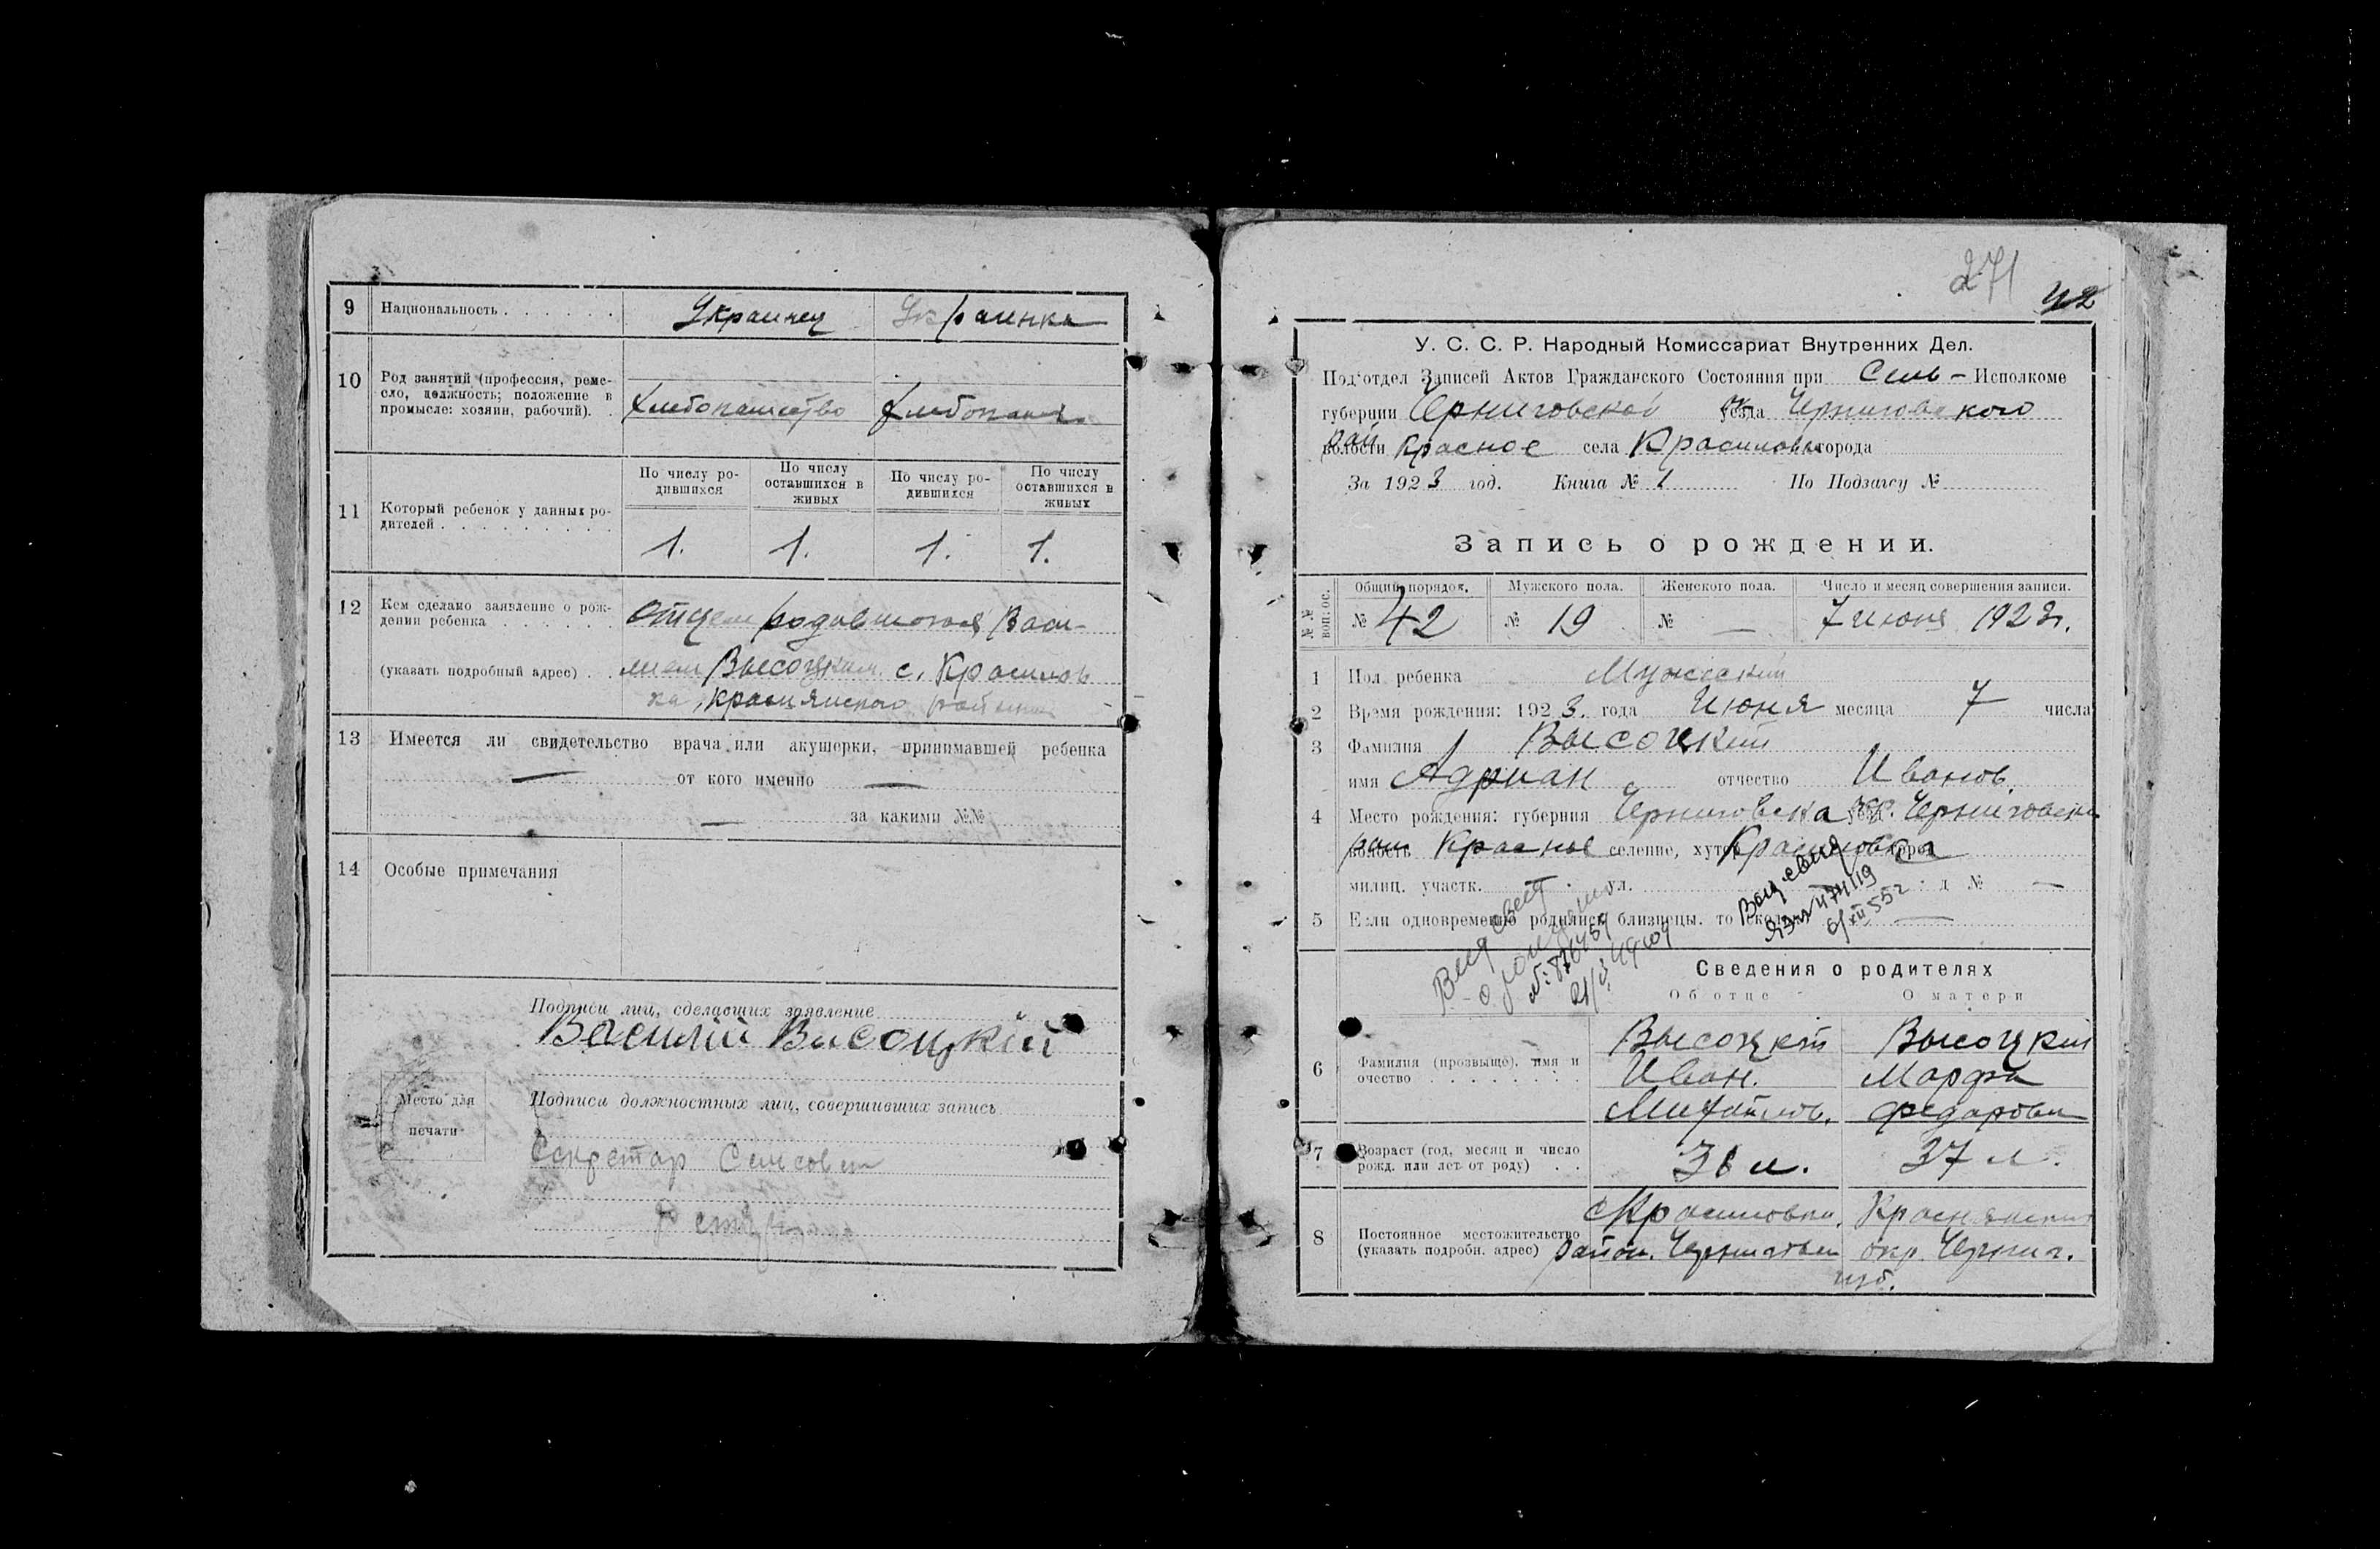 9 Национальность . . . . . . Украинец Украинка
10 Род занятий (профессия, реме-
сло, должность; положение в
промысле: хозяин, рабочий). . Хлебопашество хлебопаш.
По числу ро-
дившихся
По числу
оставшихся в
живых
По числу ро-
дившихся
По числу
оставшихся в
живых
11 Который ребенок у данных ро-
дителей . . . . . . . . . 1. 1. 1. 1.
12 Кем сделано заявление о рож-
дении ребенка . . . . . . Отцем родившогося Васи-
(указать подробный адрес) . . лием Высоцким с. Красилов
ка, краснянского района
13 Имеется ли свидетельство врача или акушерки, принимавшей ребенка
— от кого именно —
— за какими №№
14 Особые примечания
Подписи лиц, сделавших заявление
Василій Висоцкій
Место для
печати
Подписи должностных лиц, совершивших запись
Секретар Сельсовета
271
42
У. С. С. Р. Народный Комиссариат Внутренних Дел.
Под'отдел Записей Актов Гражданского Состояния при Сель - Исполкоме
губернии Черниговской ок уезда Черниговского
рай волости Красное села Красиловка города
За 1923 год. Книга № 1 По Подзагсу №
Запись о рождении.
№№ воп. ос.
Общий порядок. Мужского пола. Женского пола. Число и месяц совершения записи.
№ 42 № 19 № — 7 июня 1923г.
1 Пол ребенка Мужеский
2 Время рождения: 1923. года Июня месяца 7 числа
3 Фамилия Высоцкий
имя Адриан отчество Иванов.
4 Место рождения: губерния Черниговска уезд. Черниговски
рай волость Красное селение, хутор Красиловка город
милиц. участк. — ул. д № —
5 Если одновременно родились близнецы. то сколько —
Выд свид
о рождению
№: 876459
Выд. свид
474119
6/XII 55г
Сведения о родителях
Об отце О матери
6 Фамилия (прозвыще), имя и
очество . . . . . . . .
Высоцкий Высоцкий
Иван. Марфа
Михайлов. Федаровна
7 Возраст (год, месяц и число
рожд. или лет от роду) . . 36 л. 37 л.
8 Постоянное местожительство
(указать подробн. адрес)
с Красиловка, Краснянский
район. Чернигов. окр. Черниг.
губ.